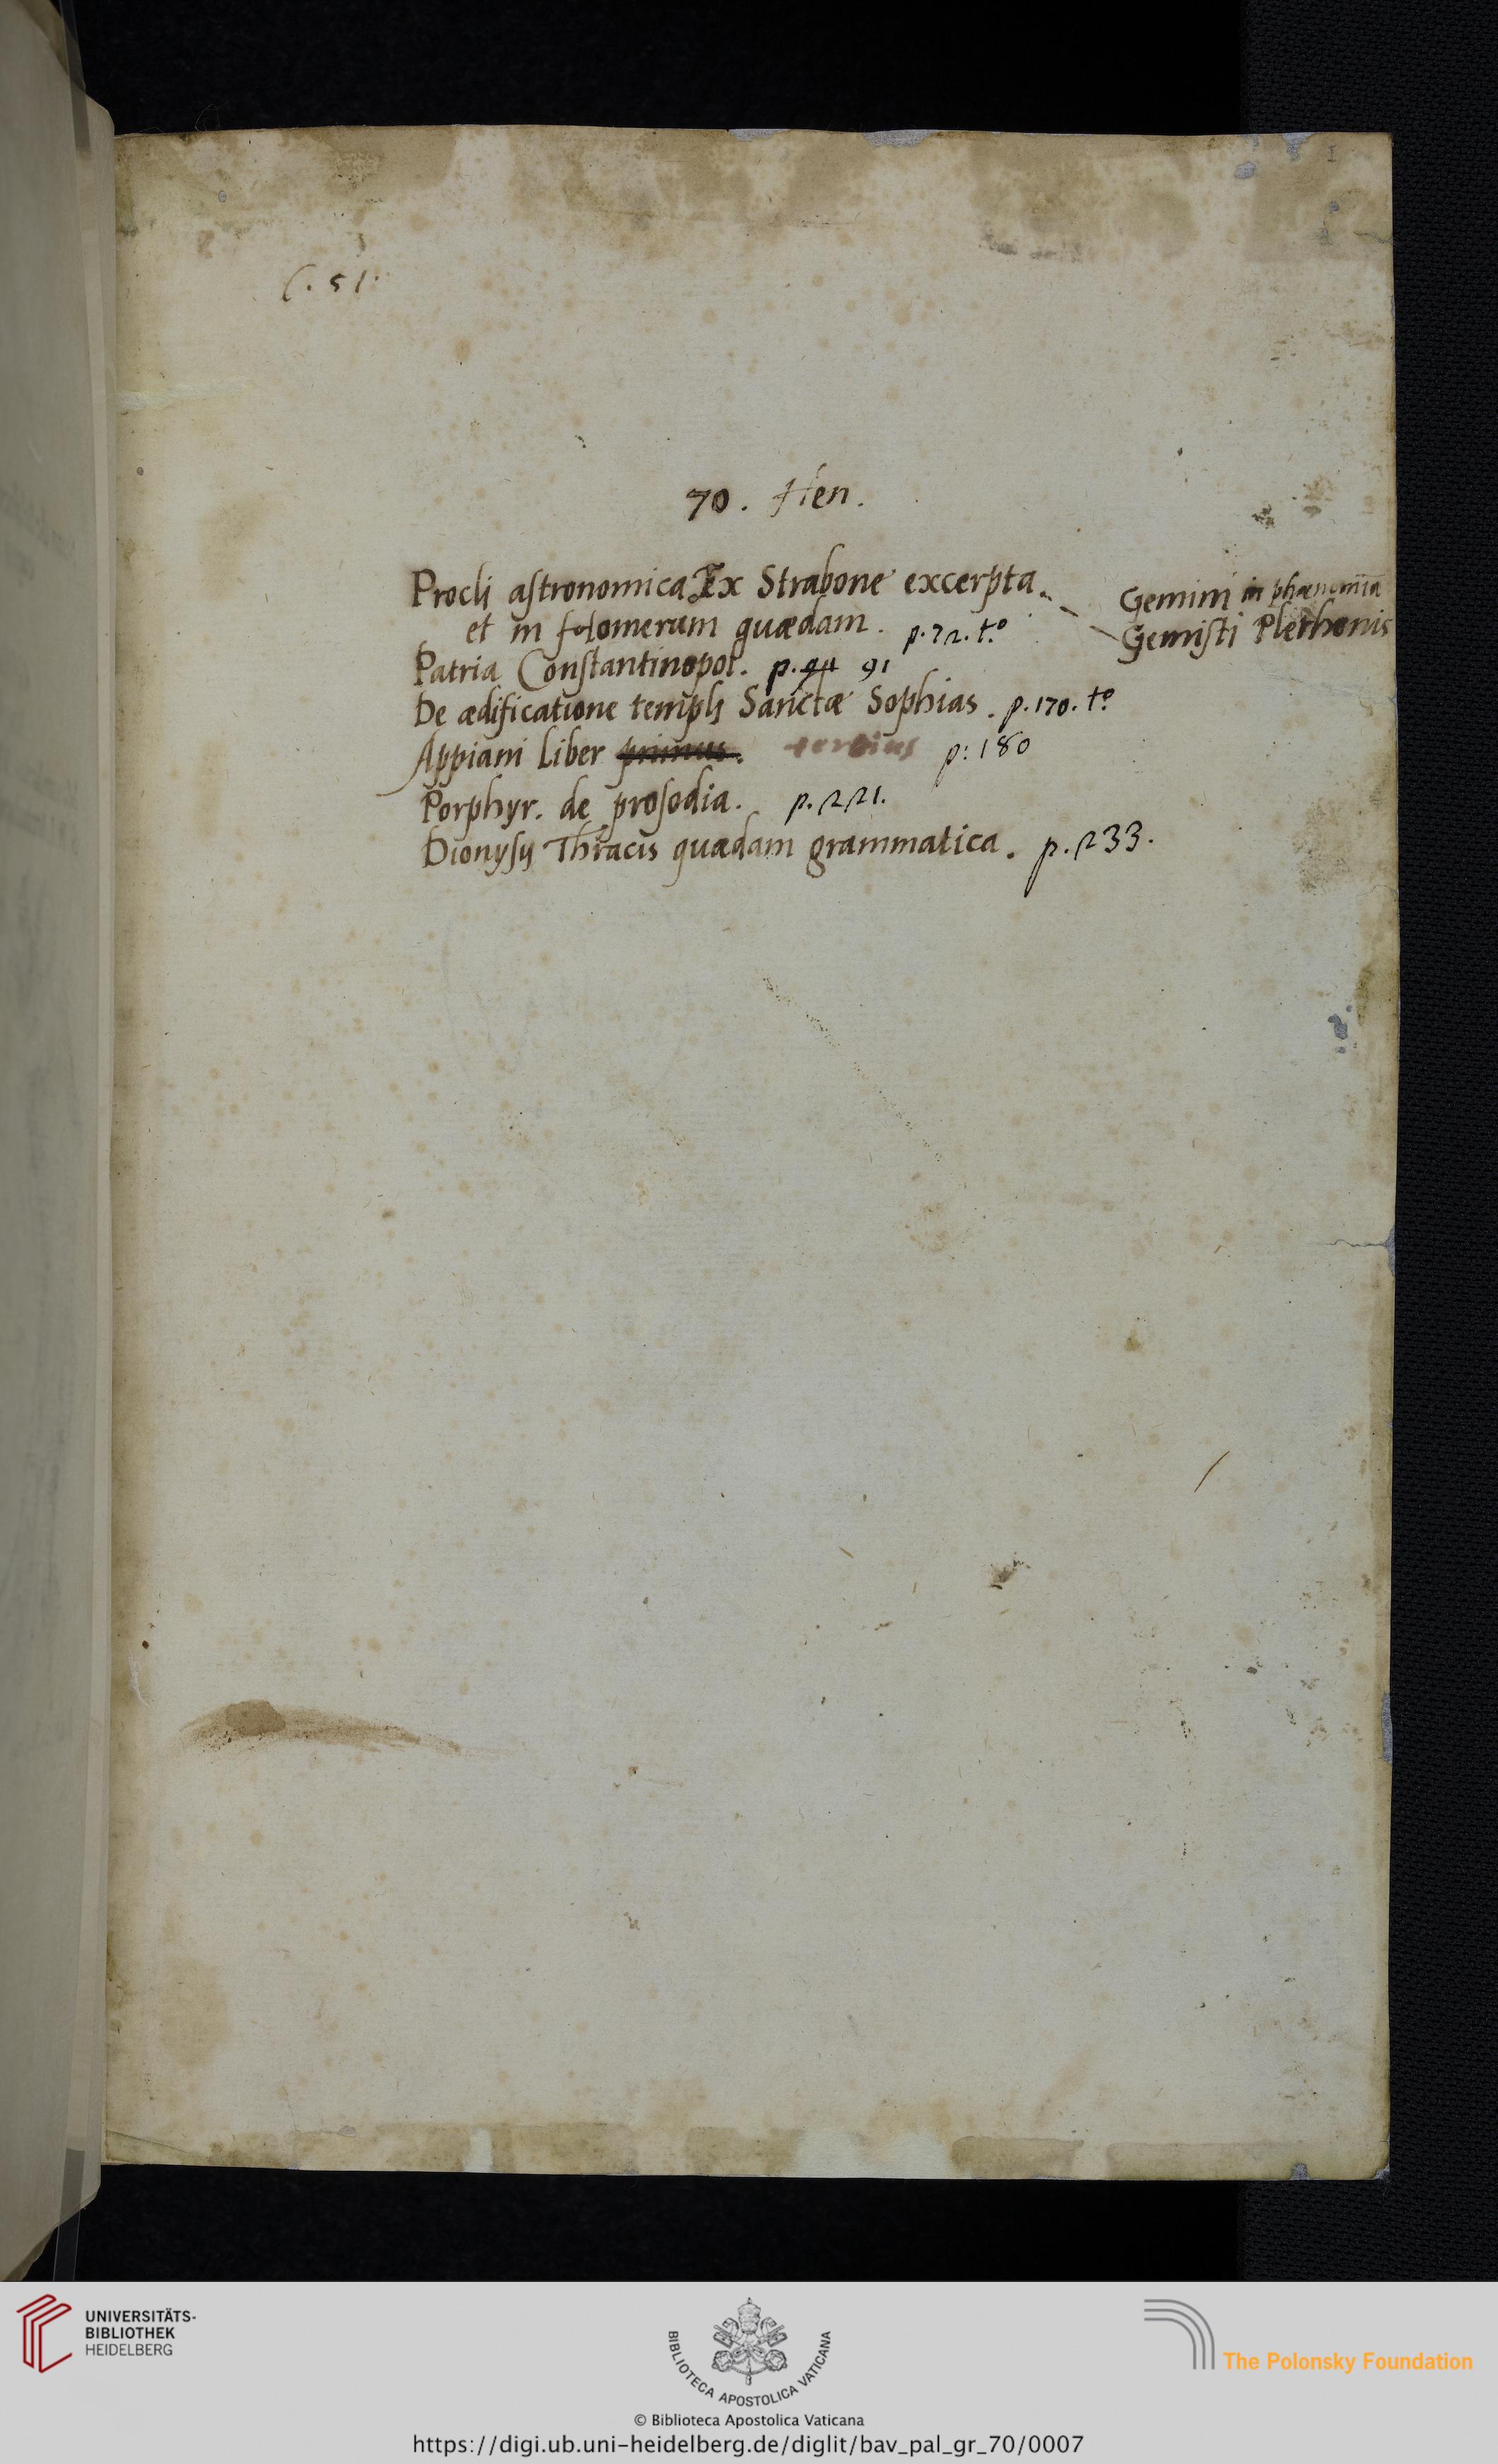 C. 51.
70. Hen.
Procli astronomica Ex Strabone excerpta.
et in ptolomerum quædam. p. 72. to
Gemini in phænomīa
Gemisti Plethonis
Patria Constantinopol. p. 91
De ædificatione templi Sanctæ Sophias. p. 170. to
Appiani Liber primus. tertius p: 180
Porphyr. de prosodia. p. 221.
Dionysij Thracis quædam grammatica. p. 233.
UNIVERSITÄTS-
BIBLIOTHEK
HEIDELBERG
BIBLIOTECA APOSTOLICA VATICANA
The Polonsky Foundation
© Biblioteca Apostolica Vaticana
https://digi.ub.uni-heidelberg.de/diglit/bav_pal_gr_70/0007